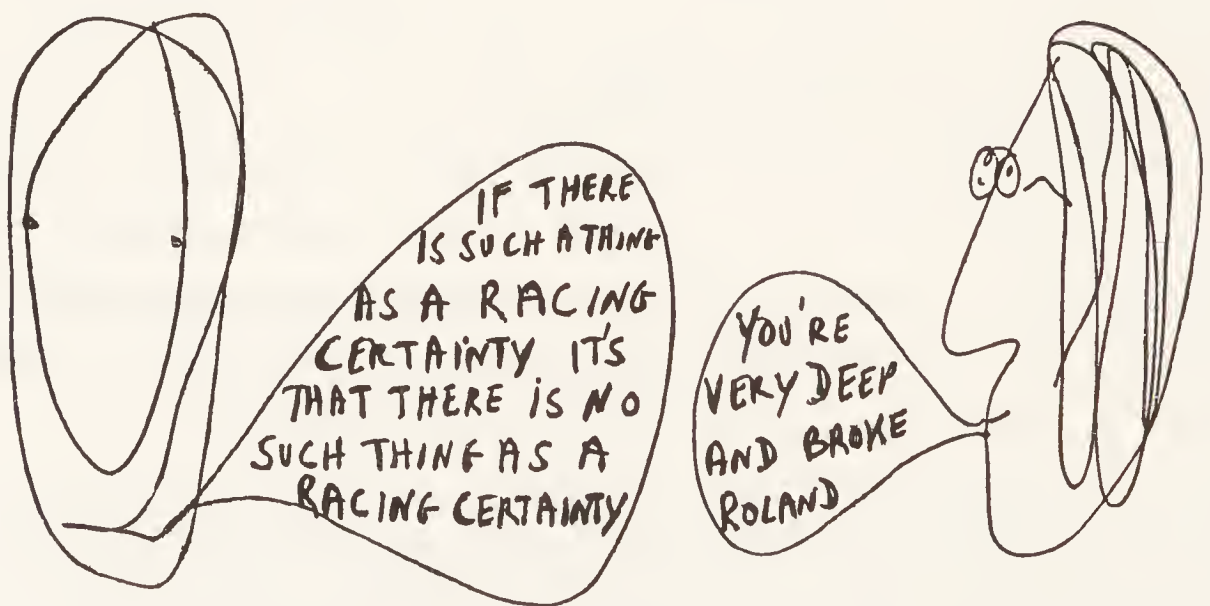 IF THERE
IS SUCH A THING
AS A RACING
CERTAINTY IT'S
THAT THERE IS NO
SUCH THING AS A
RACING CERTAINTY
YOU'RE
VERY DEEP
AND BROKE
ROLAND